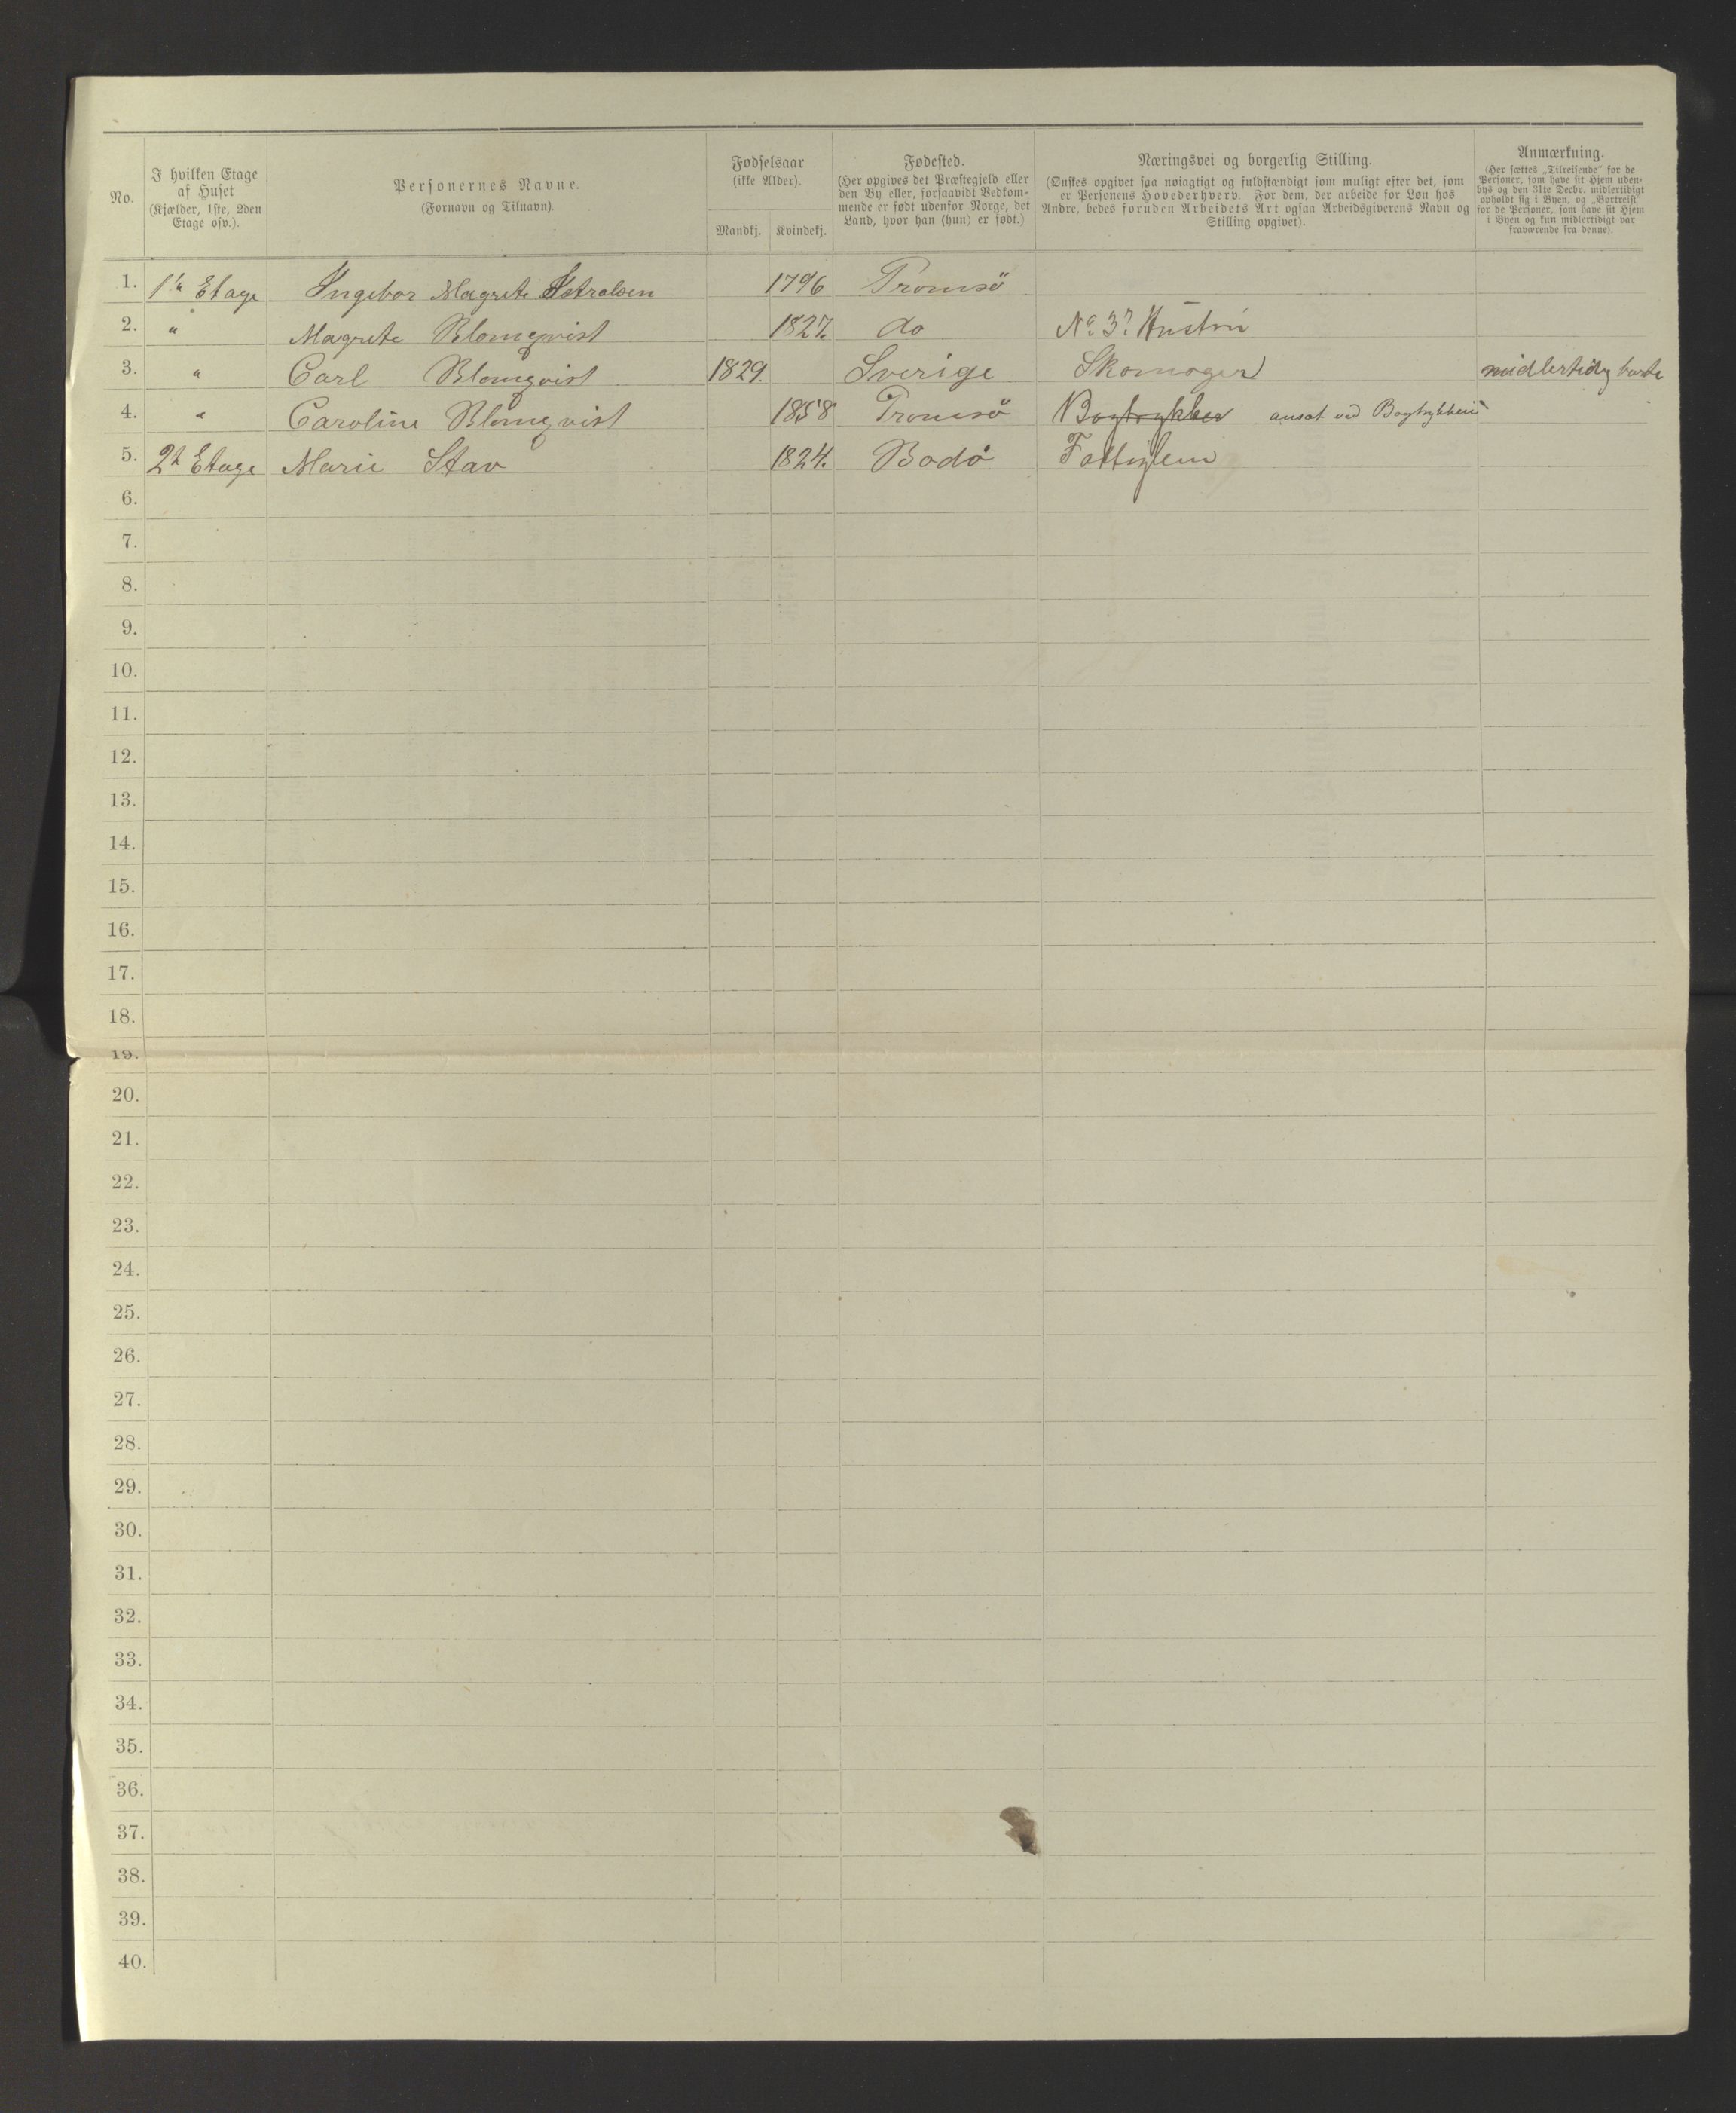 No.
I hvilken Etage
af Huset
(Kjælder, 1ste, 2den
Etage osv.).
Personernes Navne.
(Fornavn og Tilnavn).
Fødselsaar
(ikke Alder).
Mandkj. Kvindekj.
Fødested.
(Her opgives det Præstegjeld eller
den By eller, forsaavidt Vedkom-
mende er født udenfor Norge, det
Land, hvor han (hun) er født.)
Næringsvei og borgerlig Stilling.
(Ønskes opgivet saa nøiagtigt og fuldstændigt som muligt efter det, som
er Personens Hovederhverv. For dem, der arbeide for Løn hos
Andre, bedes foruden Arbeidets Art ogsaa Arbeidsgiverens Navn og
Stilling opgivet).
Anmærkning.
(Her sættes „Tilreisende" for de
Personer, som have sit Hjem uden-
bys og den 31te Decbr. midlertidigt
opholdt sig i Byen, og „Bortreist"
for de Personer, som have sit Hjem
i Byen og kun midlertidigt var
fraværende fra denne).
1. Etage Ingebor Magrete 1796 Tromsö
2. " Magrete Blomqvist 1827. do No. 3? Hustru
3. " Carl Blomqvist 1829. Sverige Skomager midlertidig borte
4. " Caroline Blomqvist 1858 Tromsö Bogtrykker ansat ved Bogtrykkeri
5. 2 Etage Marie Stav 1824. Bodö Fattiglem
6.
7.
8.
9.
10.
11.
12.
13.
14.
15.
16.
17.
18.
19.
20.
21.
22.
23.
24.
25.
26.
27.
28.
29.
30.
31.
32.
33.
34.
35.
36.
37.
38.
39.
40.